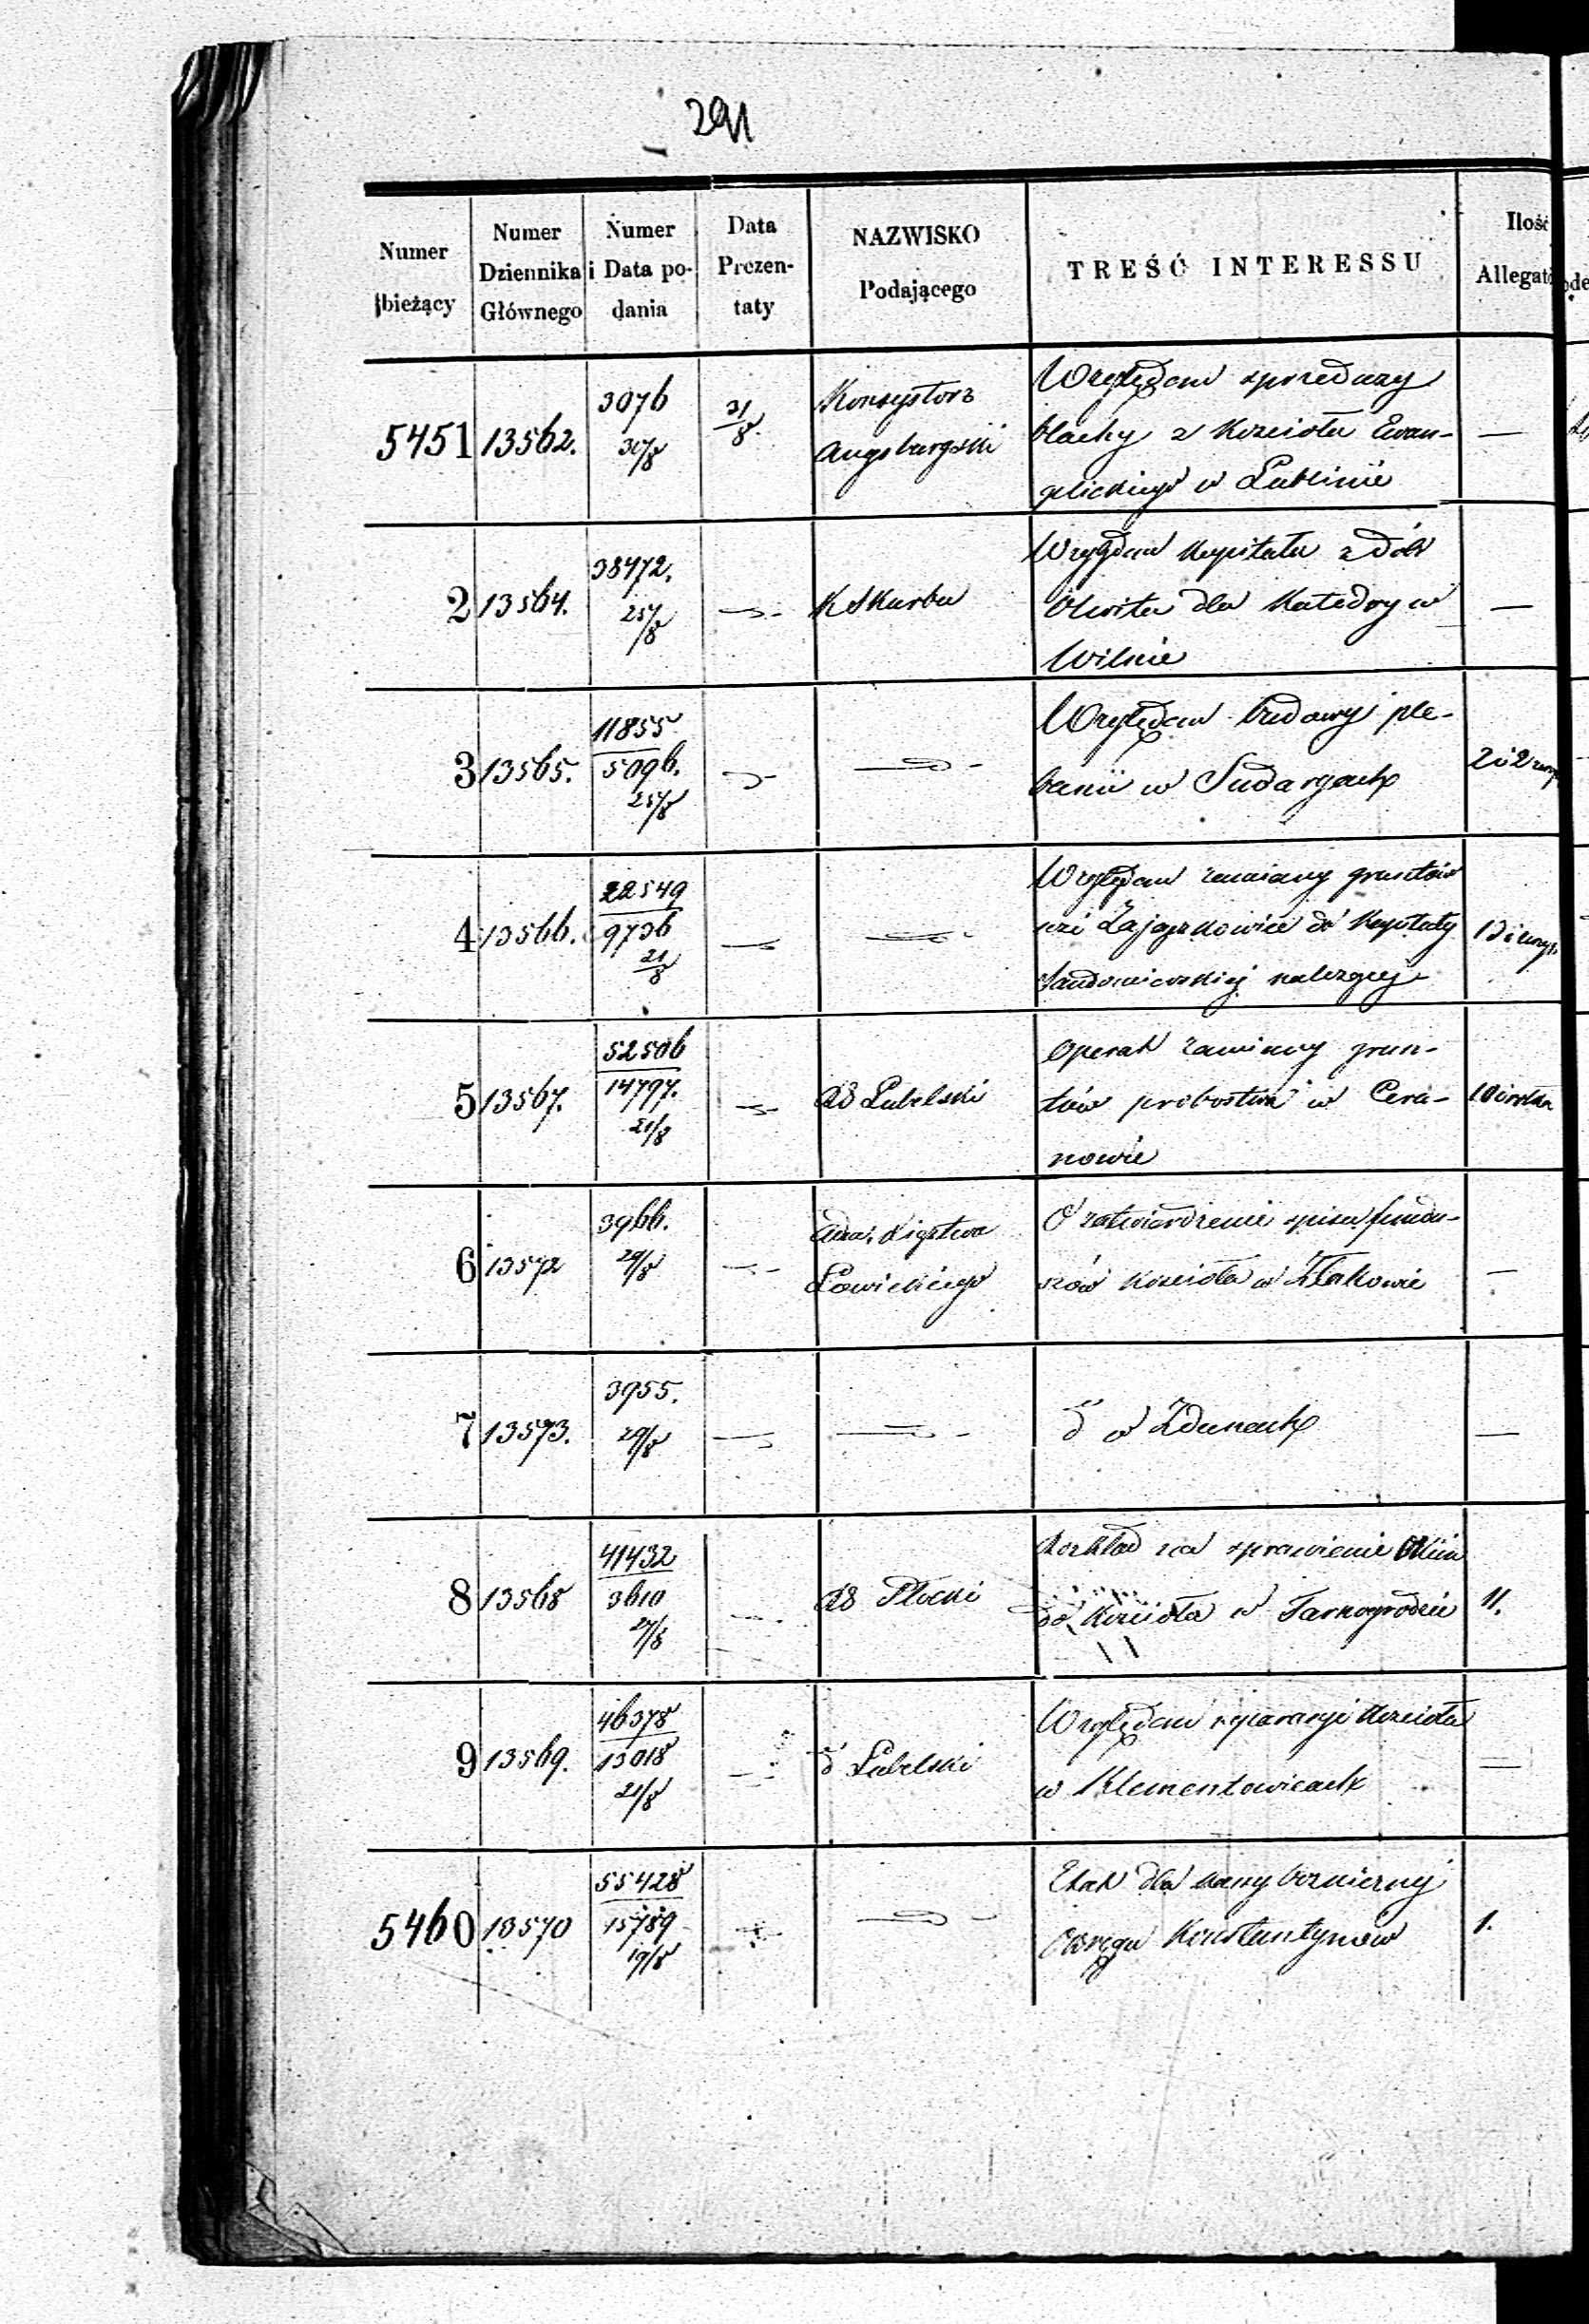 291
Numer bieżący | Numer Dziennika Głównego | Numer i Data podania | Data Prezentaty | NAZWISKO Podającego | TREŚĆ INTERESSU | Ilość
5451 | 13562. | 3076 30/8 | 31/8 | Konsystorz
Augsburgski | Względem sprzedaży
blachy z Kościoła Ewan-
gelickiego w Lublinie | —
2 | 13564. | 38472. 25/8 | — | K Skarbu | Względem Kapitału z dóbr
Olwita dla Katedry w
Wilnie | —
3 | 13565. | 11855 5096. 25/8 | — | — | Względem budowy ple-
banii w Sudargach | 2 i 2
4 | 13566. | 22549 9736 21/8 | — | — | Względem zamiany gruntów
wsi Zajączkowice do Kapituły
Sandomierskiej należącej
5 | 13567. | 52506 14797. 21/8 | — | RG Lubelski | Operat zamiany grun-
tów probostwa w Cera-
nowie | 10
6 | 13572 | 3966. 29/8 | — | Adm. Księstwa
Łowickiego | O zatwierdzenie spisu fundu-
szów Kościoła w Złakowie | —
7 | 13573. | 3955. 29/8 | — | — | d° w Zdunach | —
8 | 13568 | 41432 3610 27/8 | — | RG Płocki | Rozkład na sprawienie
do Kościoła w Tarnogrodzie | 11.
9 | 13569. | 46378 13018 21/8 | — | d° Lubelski | Względem reparacyi Kościoła
w Klementowicach | —
5460 | 13570 | 55428 15789 19/8 | — | — | Etat dla kassy bożniczej
Okręgu Konstantynów | 1.